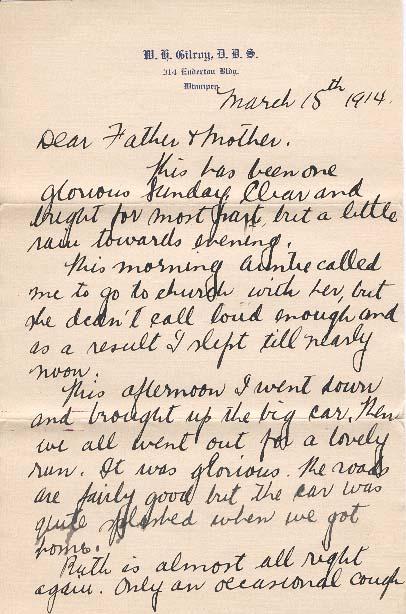 W. H. Gilroy, D. D. S.
314 Enderton Bldg.
Winnipeg
March 15th 1914.
Dear Father & Mother.
This has been one
glorious Sunday. Clear and
bright for most part, but a little
rain towards evening.
This morning Auntie called
me to go to church with her, but
she dean't call loud enough and
as a result I slept till nearly
noon.
This afternoon I went down
and brought up the big car. Then
we all went out for a lovely
run. It was glorious. The roads
are fairly good but the car was
quite splashed when we got
home.
Ruth is almost all right
again. Only an occasional cough